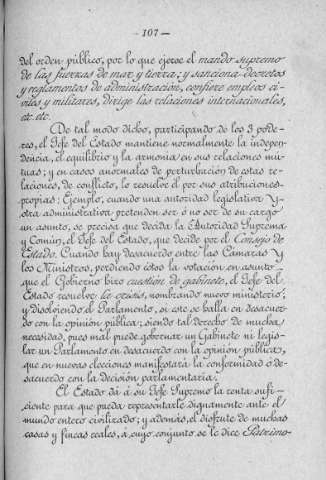 - 107 -
del orden público, por lo que ejerce el mando supremo
de las fuerzas de mar y tierra; y sanciona decretos
y reglamentos de administración, confiere empleos ci-
viles y militares, dirige las relaciones internacionales,
etc. etc.
De tal modo dicho, participando de los 3 pode-
res, el Jefe del Estado mantiene normalmente la indepen-
dencia, el equilibrio y la armonía en sus relaciones mú-
tuas; y en casos anormales de perturbación de estas re-
laciones, de conflicto, lo resuelve él por sus atribuciones
propias: Ejemplo, cuando una autoridad legislativa y
otra administrativa pretenden ser ó no ser de su cargo
un asunto, se precisa que decida la Autoridad Suprema
y Común, el Jefe del Estado, que decide por el Consejo de
Estado. Cuando hay desacuerdo entre las Cámaras y
los Ministros, perdiendo éstos la votación en asunto
que el Gobierno hizo cuestión de gabinete, el Jefe del
Estado resuelve la crisis, nombrando nuevo ministerio,
y disolviendo el Parlamento, si éste se halla en desacuer-
do con la opinión pública; siendo tal derecho de mucha
necesidad, pues mal puede gobernar un Gabinete ni legis-
lar un Parlamento en desacuerdo con la opinión pública,
que en nuevas elecciones manifestará la conformidad ó de-
sacuerdo con la decisión parlamentaria.
El Estado dá á su Jefe Supremo la renta sufi-
ciente para que pueda representarle dignamente ante el
mundo entero civilizado; y además, el disfrute de muchas
casas y fincas reales, á cuyo conjunto se le dice Patrimo-